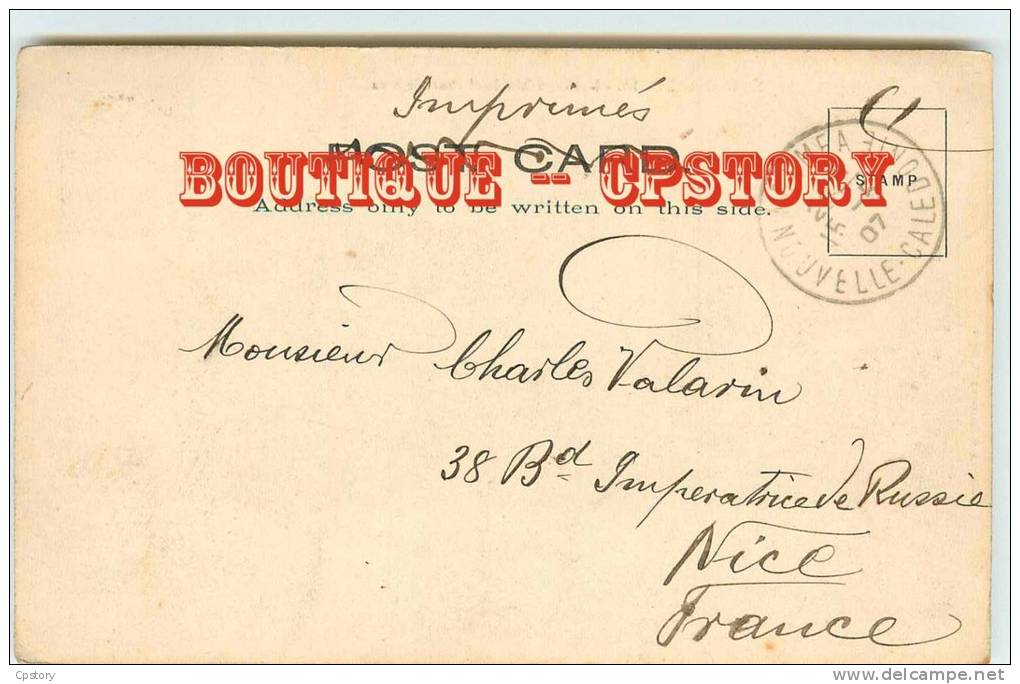 Imprimés
POST CARD.
BOUTIQUE -- CPSTORY
Address only to be written on this side.
STAMP
NOUMEA
07
NOUVELLE-CALEDONIE
Monsieur Charles Valarin
38 Bd Imperatrice de Russie
Nice
France
Cpstory
delcampe.net